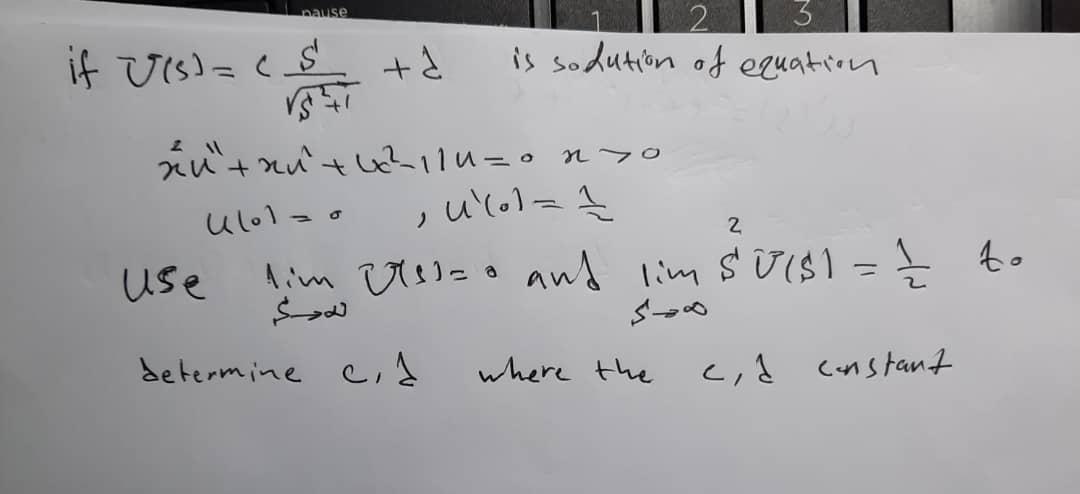 pause 1 2 3
if U(s) = c s/√(s²+1) + d is solution of equation
x²u'' + xu' + (x²-1)u = 0 x > 0
u(0) = 0 , u'(0) = 1/2
use lim s→∞ U(s) = 0 and lim s→∞ s² U(s) = 1/2 to
determine c, d where the c, d constant